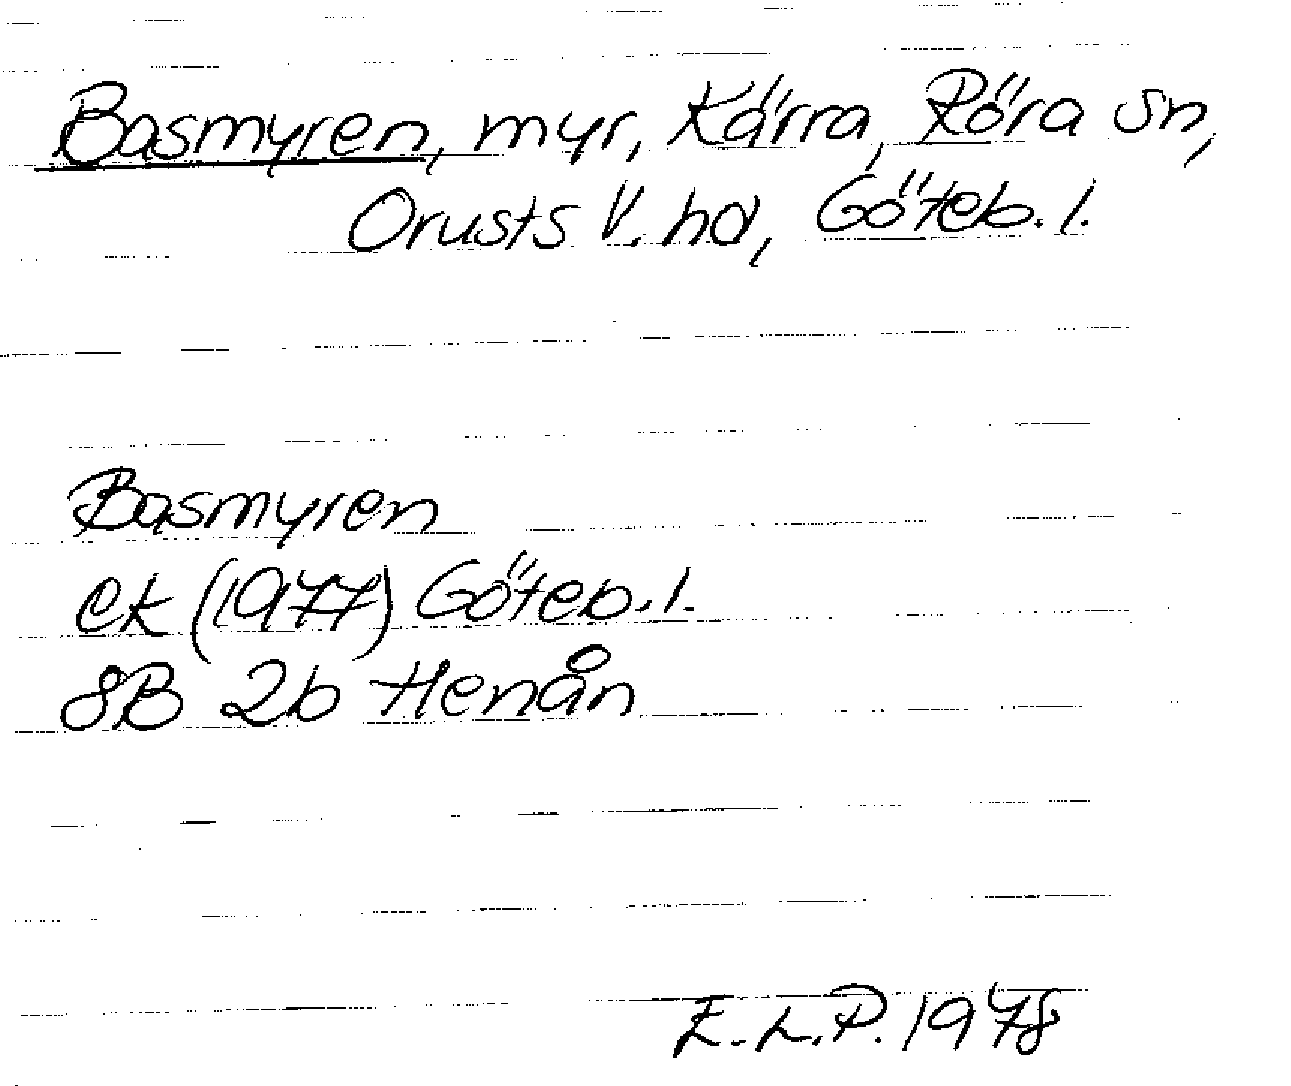 Basmyren, myr, Kärra, Röra sn,
Orusts V. hd, Göteb. l.
Basmyren
ek (1977) Göteb. l.
8B 2b Henån
E.L.P. 1978